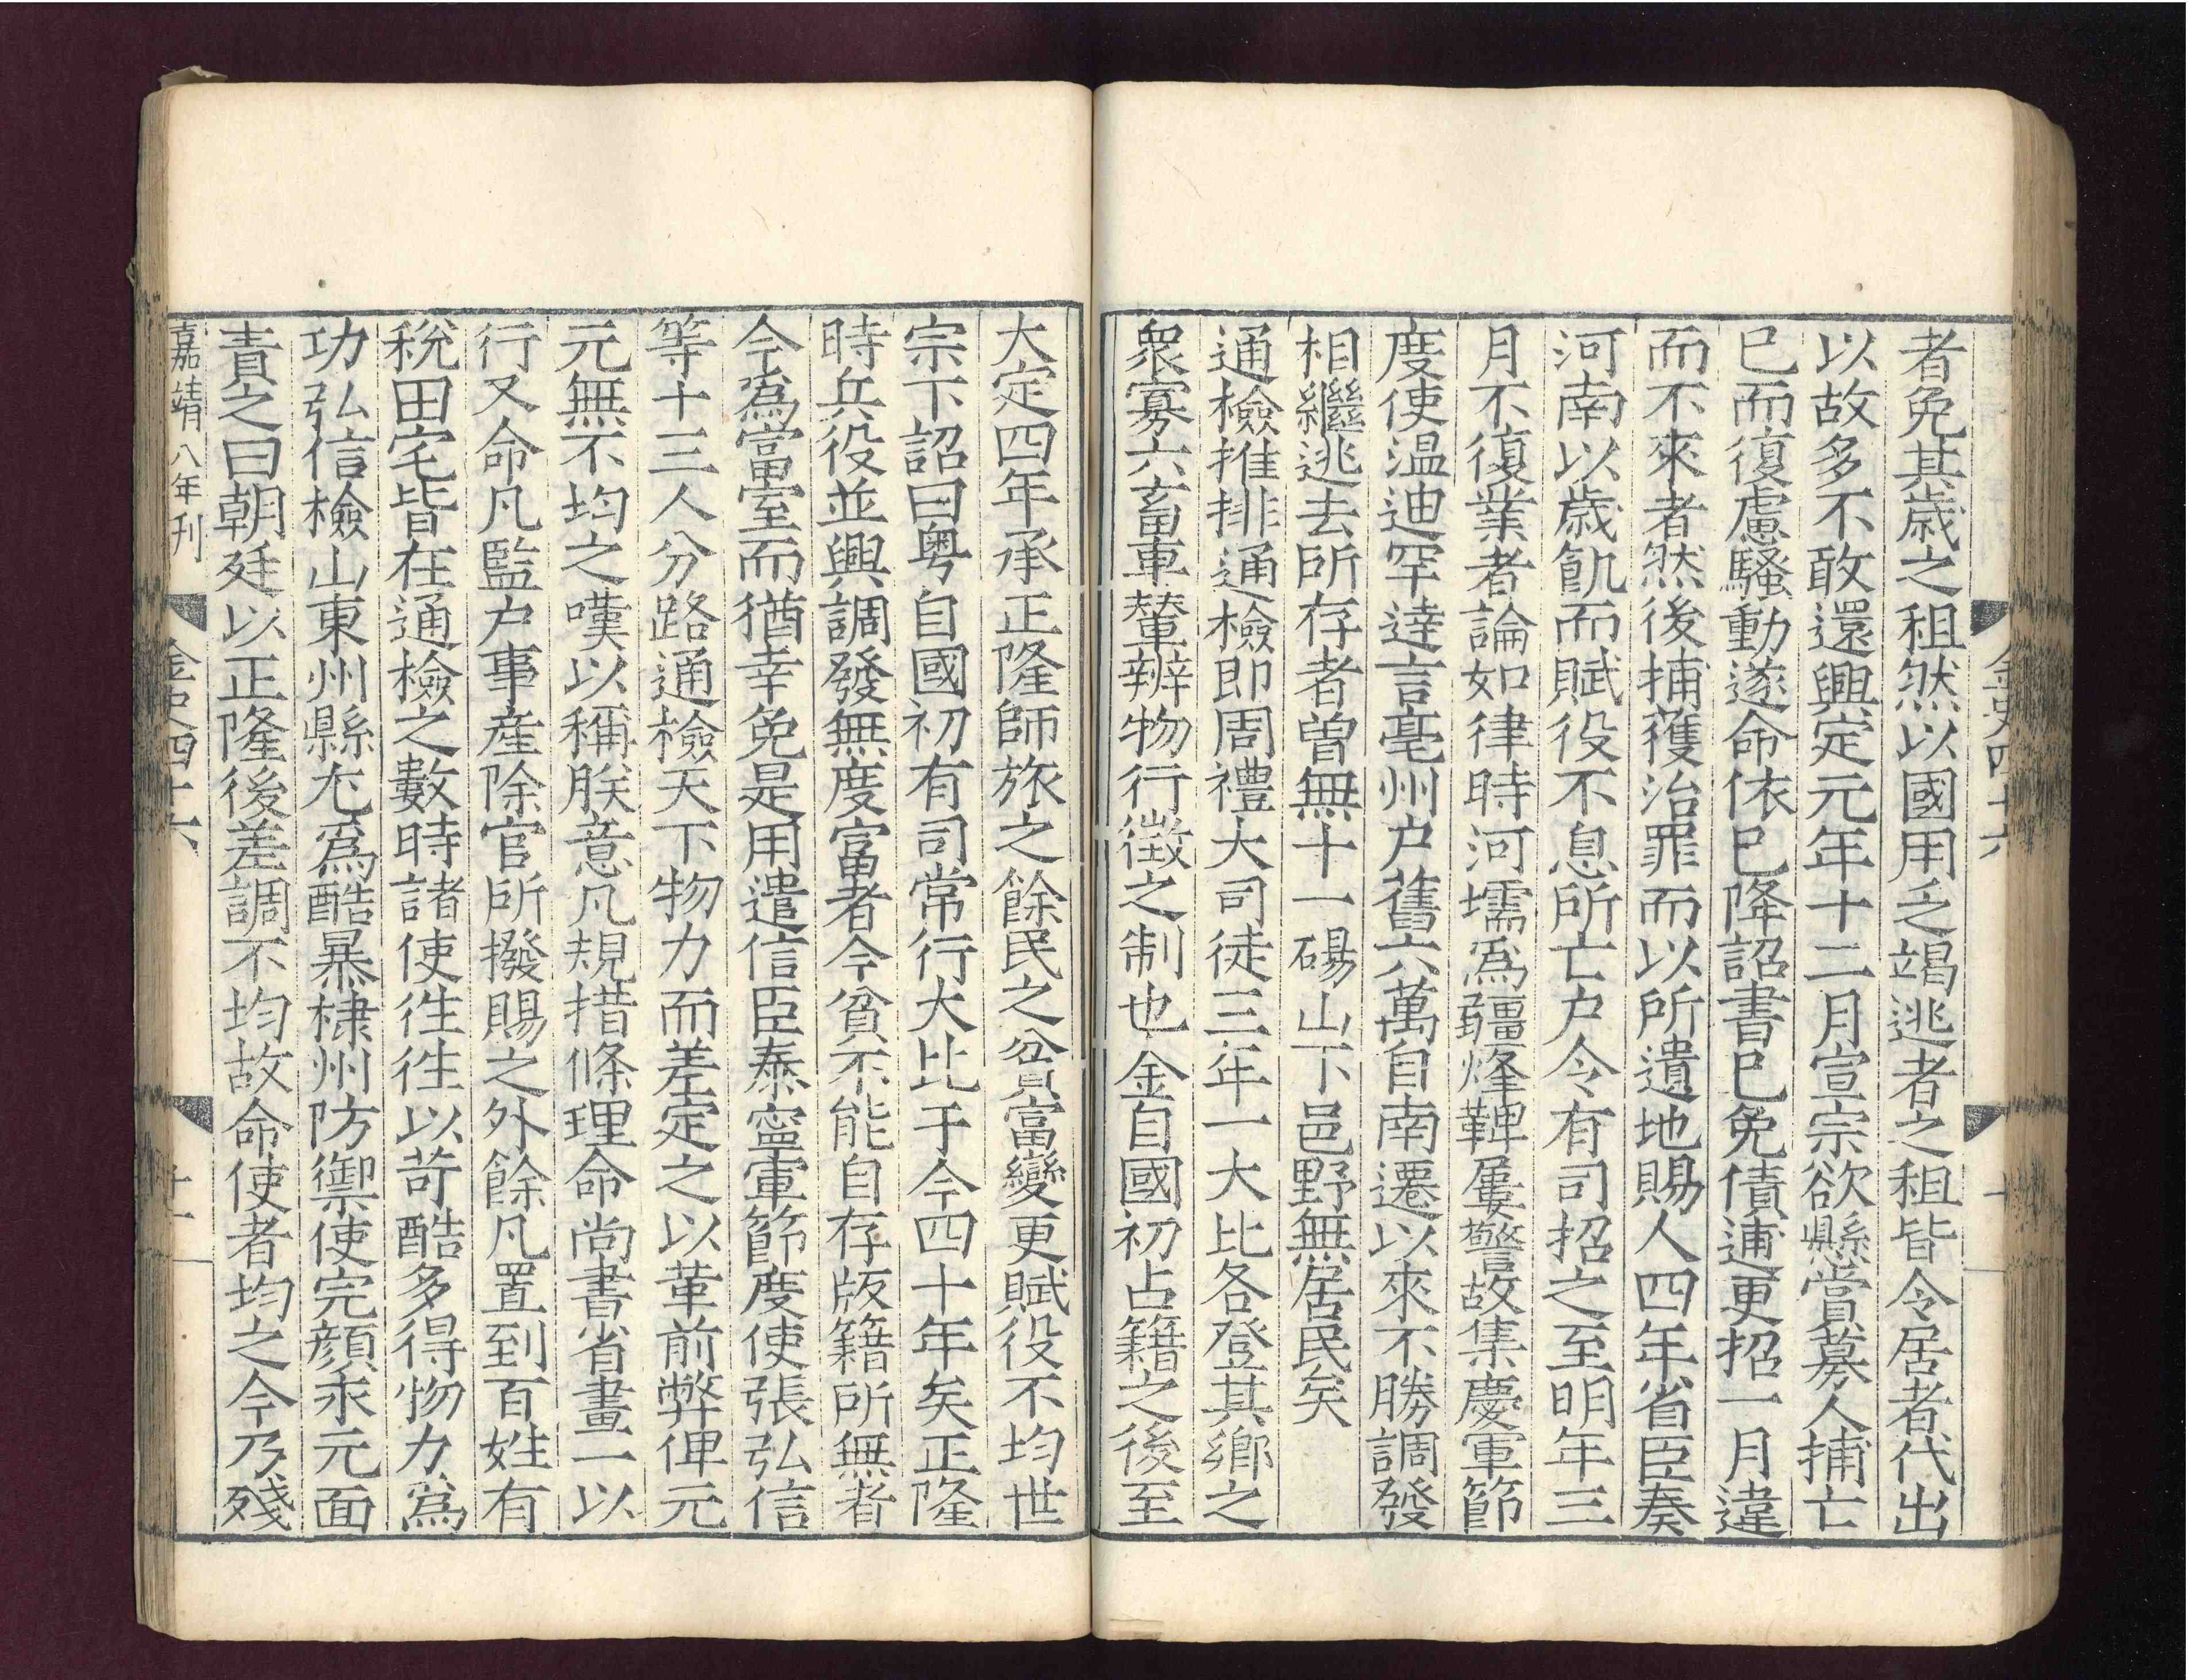 者免其歲之租然以國用乏竭逃者之租皆令居者代出
以故多不敢還興定元年十二月宣宗欲懸賞募人捕亡
已而復慮騷動遂命依已降詔書已免債逋更招一月違
而不來者然後捕獲治罪而以所遺地賜人四年省臣奏
河南以歲飢而賦役不息所亡户令有司招之至明年三
月不復業者論如律時河壖爲疆烽鞞屢警故集慶軍節
度使温迪罕達言亳州户舊六萬自南遷以來不勝調發
相繼逃去所存者曾無十一碭山下邑野無居民矣
通檢推排通檢即周禮大司徒三年一大比各登其鄉之
衆寡六畜車輦辨物行徵之制也金自國初占籍之後至
金史四十六
十
大定四年承正隆師旅之餘民之貧富變更賦役不均世
宗下詔曰粤自國初有司常行大比于今四十年矣正隆
時兵役並興調發無度富者今貧不能自存版籍所無者
今為富室而猶幸免是用遣信臣泰寧軍節度使張弘信
等十三人分路通檢天下物力而差定之以革前弊俾元
元無不均之嘆以稱朕意凡規措條理命尚書省畫一以
行又命凡監户事産除官所撥賜之外餘凡置到百姓有
稅田宅皆在通檢之數時諸使徃徃以苛酷多得物力爲
功弘信檢山東州縣尤爲酷暴棣州防禦使完顔永元面
責之曰朝廷以正隆後差調不均故命使者均之今乃殘
嘉靖八年刊
金史四十六
十一